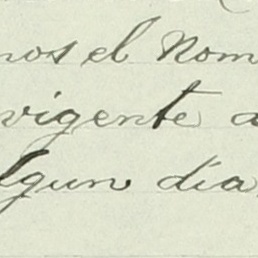 nos el nom
vigente a
lgun día,